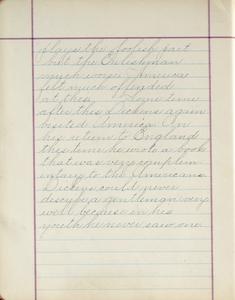 plays the foolish part
but the Englishman
much worse. America
felt much offended
at this. Some time
after this Dickens again
visited America. On
his return to England
this time he wrote a book
that was very complim-
entary to the Americans
Dickens could never
describe a gentleman very
well because in his
youth he never saw one